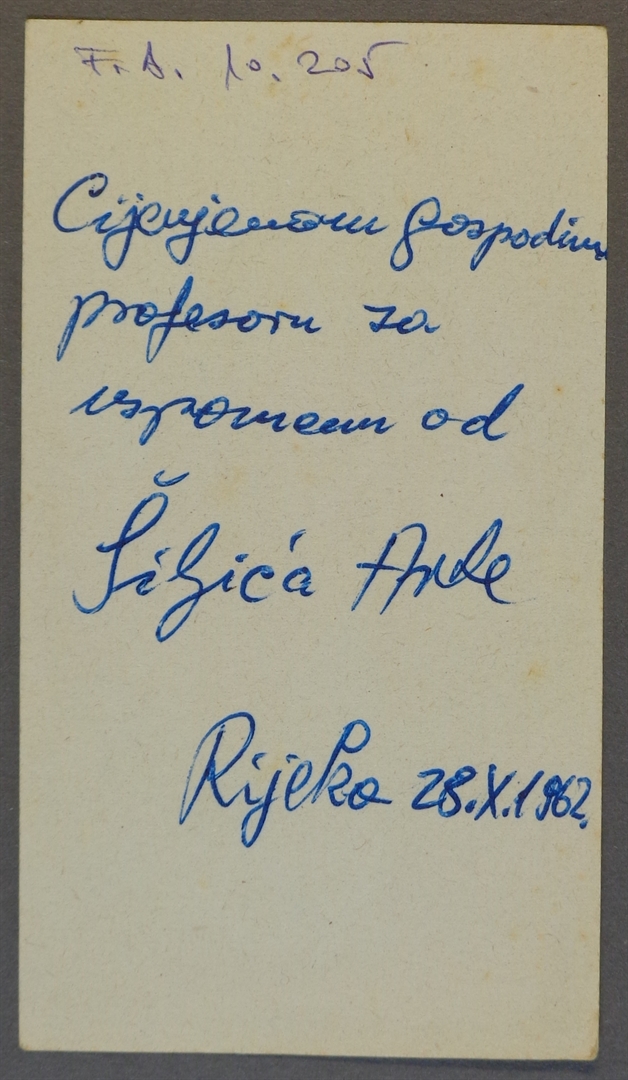 F. A. 10.205
Cijenjenom gospodinu
profesoru za
uspomenu od
Šižića Ante
Rijeka 28.X.1962.